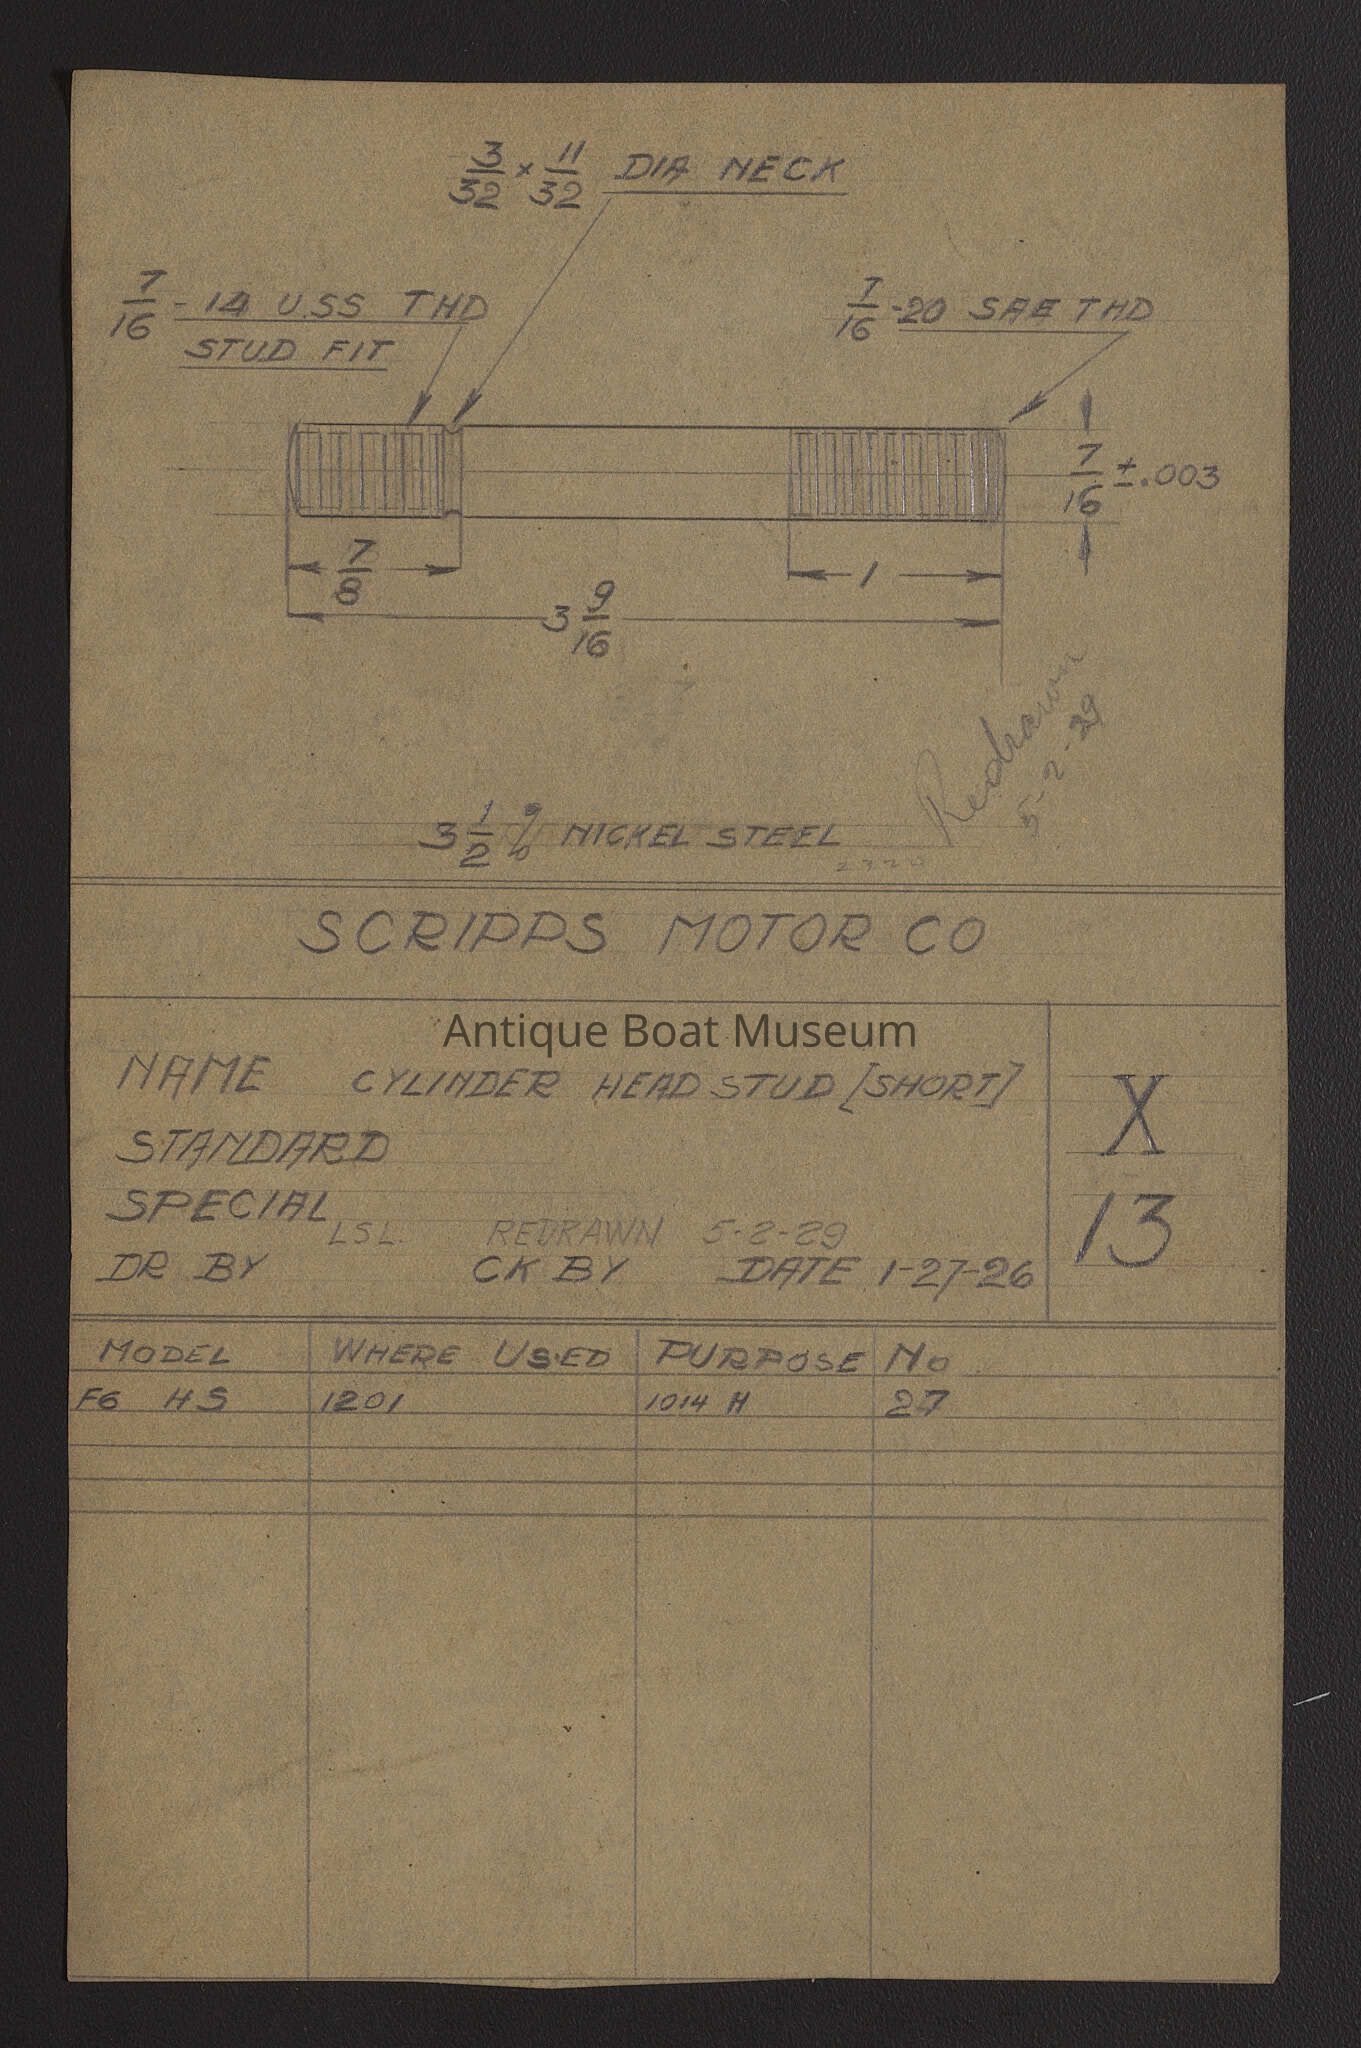 3/32 x 11/32 DIA NECK
7/16 - 14 U.S.S THD
STUD FIT
7/16 - 20 SAE THD
7/16 ±.003
7/8
1
3 9/16
Redrawn
5-2-29
3 1/2 % NICKEL STEEL
2320
SCRIPPS MOTOR CO
Antique Boat Museum
NAME CYLINDER HEAD STUD [SHORT]
X
13
STANDARD
SPECIAL
LSL. REDRAWN 5-2-29
DR BY CK BY DATE 1-27-26
MODEL WHERE USED PURPOSE No
F6 HS 1201 1014 H 27